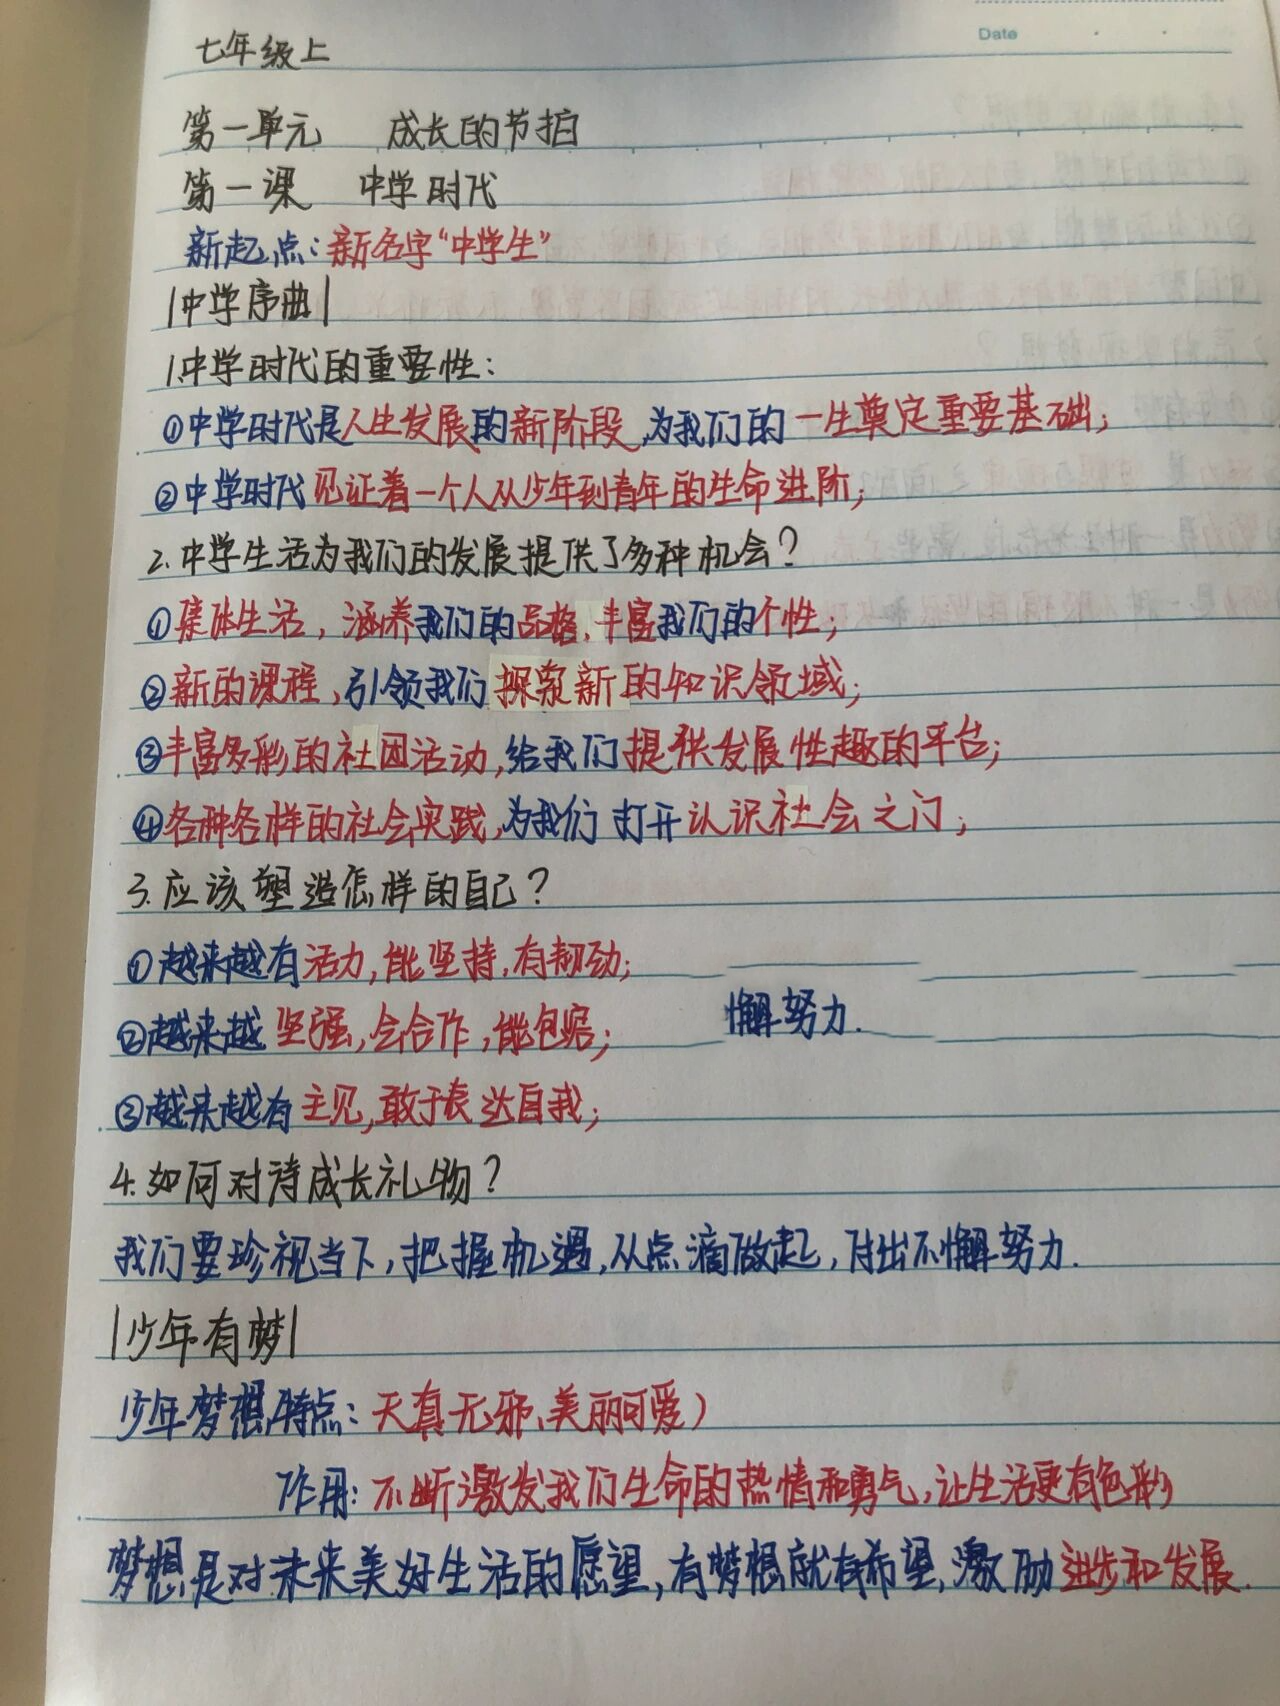 Date
七年级上
第一单元 成长的节拍
第一课 中学时代
新起点：新名字“中学生”
|中学序曲|
1.中学时代的重要性：
①中学时代是人生发展的新阶段，为我们的一生奠定重要基础；
②中学时代见证着一个人从少年到青年的生命进阶；
2.中学生活为我们的发展提供了多种机会？
①集体生活，涵养我们的品格，丰富我们的个性；
②新的课程，引领我们探索新的知识领域；
③丰富多彩的社团活动，给我们提供发展性趣的平台；
④各种各样的社会实践，为我们打开认识社会之门；
3.应该塑造怎样的自己？
①越来越有活力，能坚持，有韧劲；
②越来越坚强，会合作，能包容；
懈努力.
③越来越有主见，敢于表达自我；
4.如何对待成长礼物？
我们要珍视当下，把握机遇，从点滴做起，付出不懈努力.
|少年有梦|
少年梦想特点：天真无邪、美丽可爱）
作用：不断激发我们生命的热情和勇气，让生活更有色彩
梦想是对未来美好生活的愿望，有梦想就有希望，激励进步和发展.